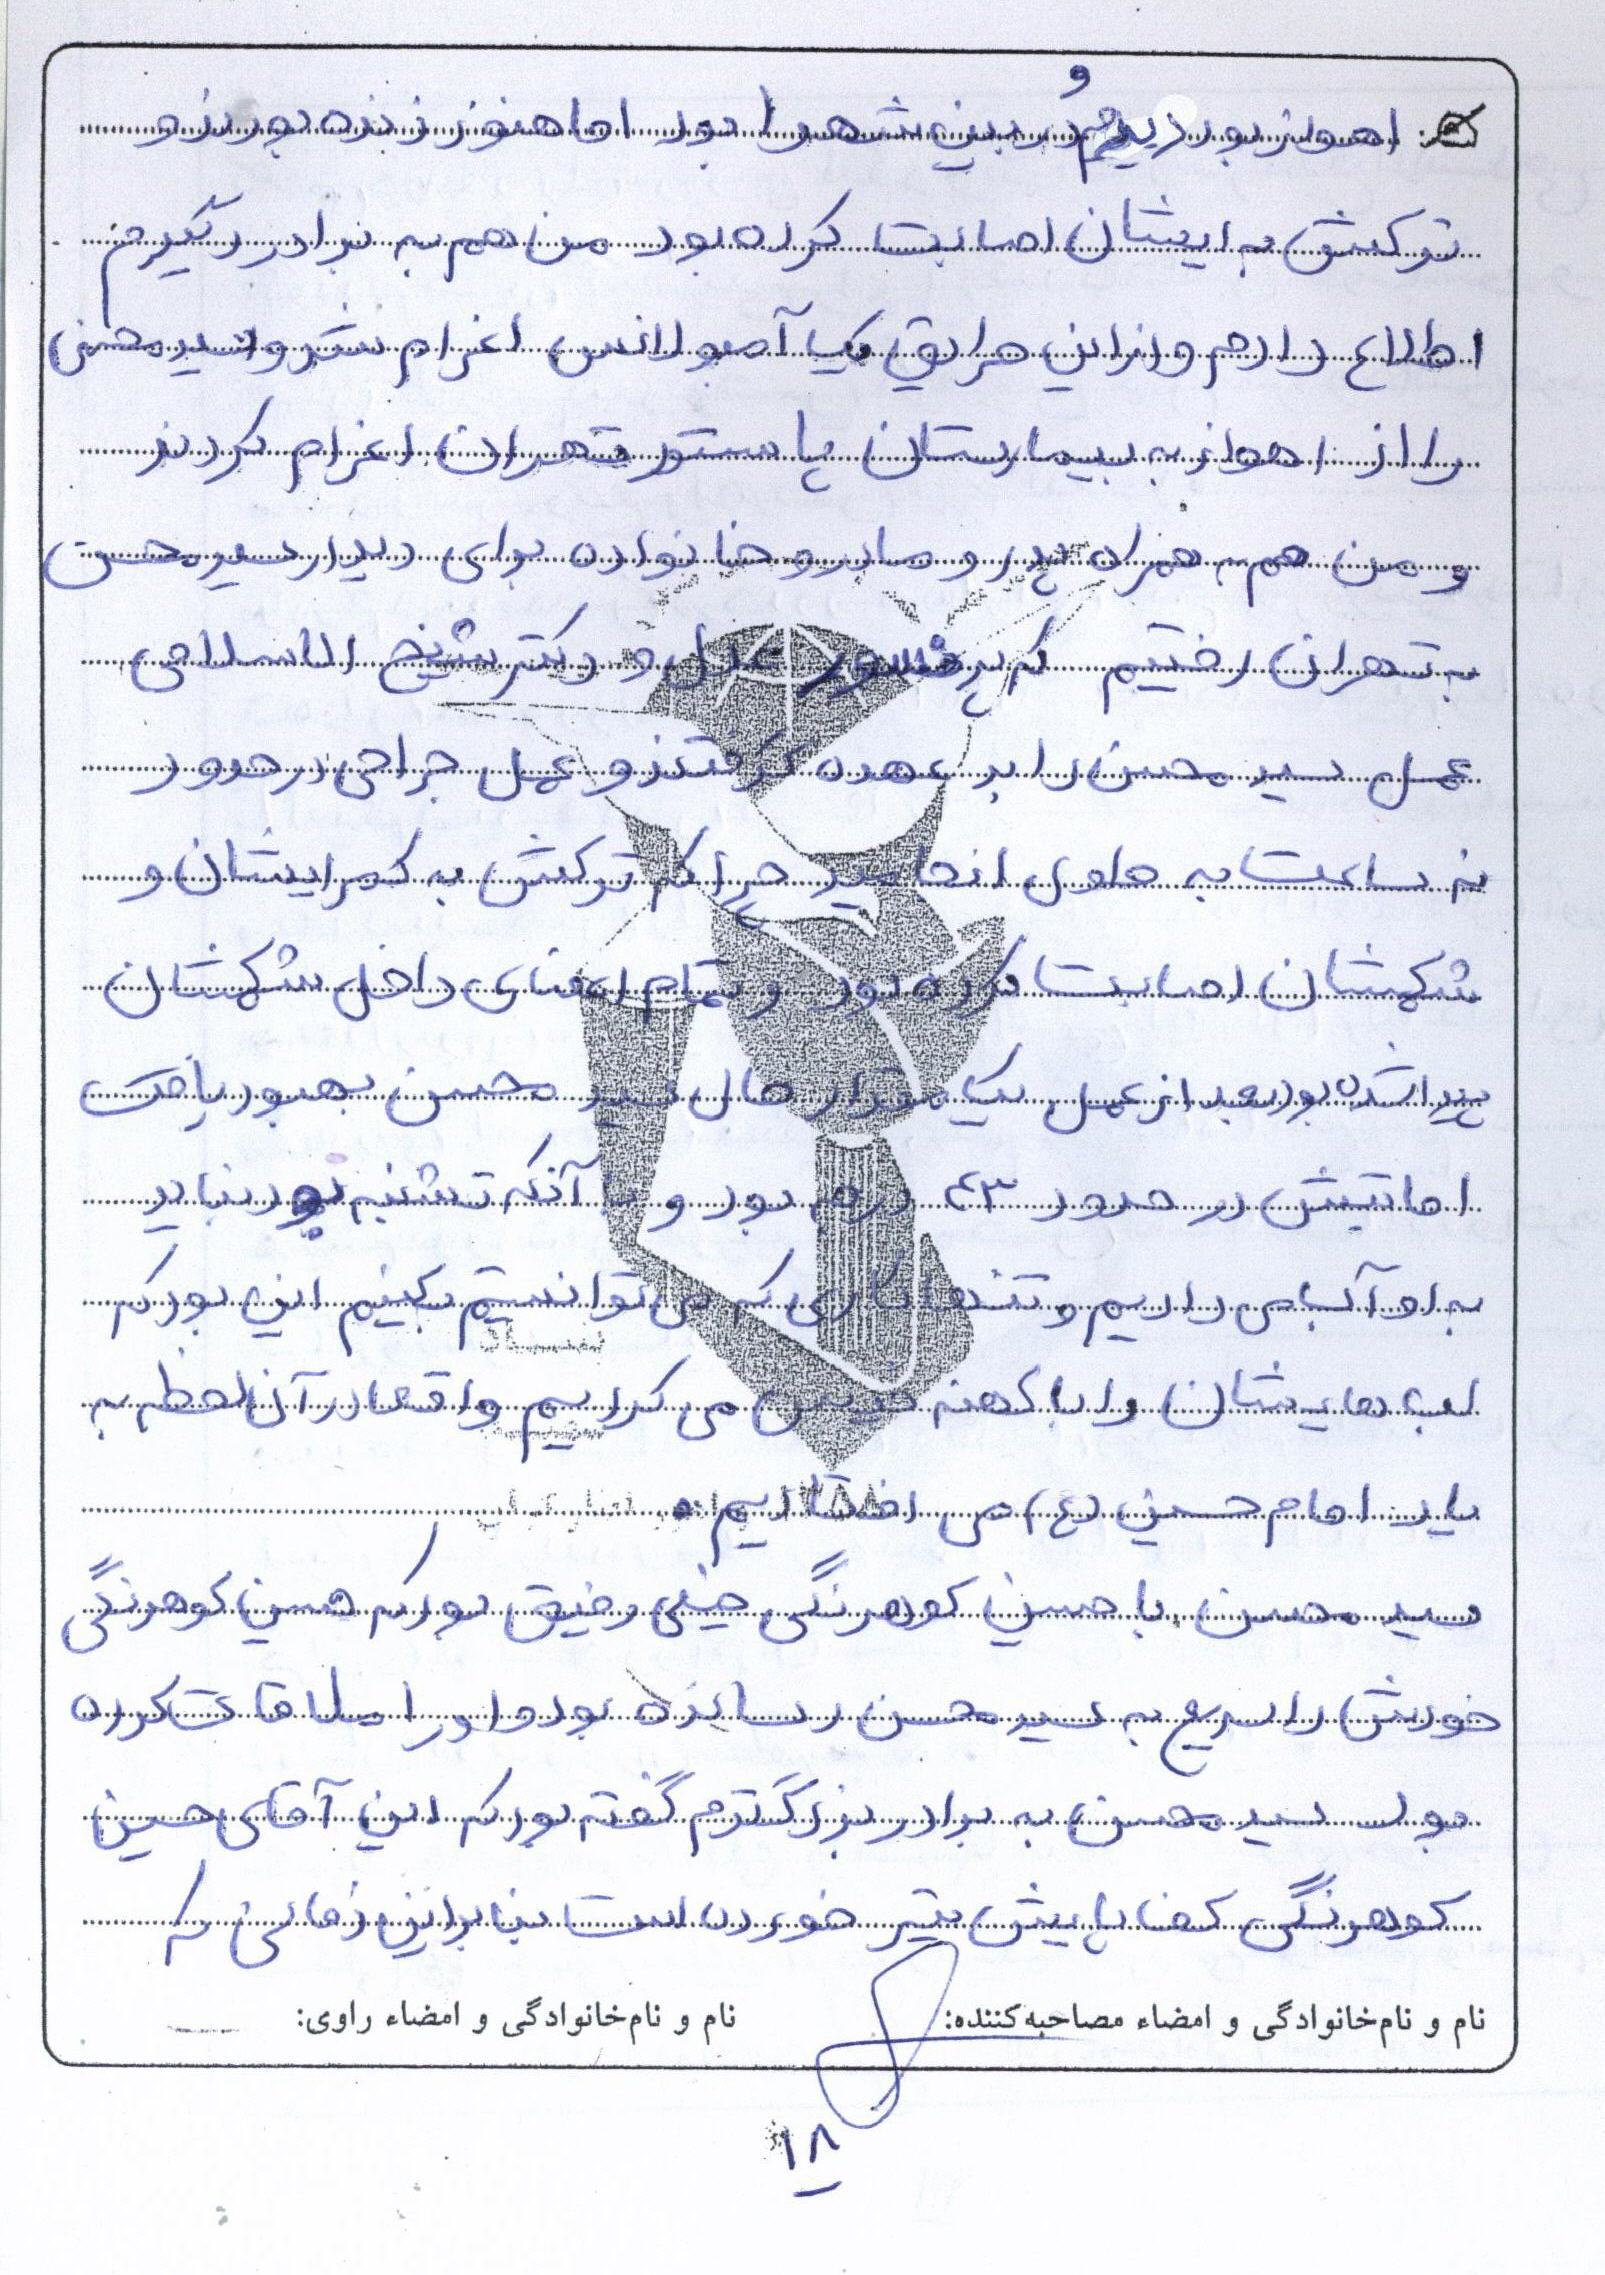 اهواز بود دیدم و در بین شهدا بود اما هنوز زنده بودند و
ترکش به ایشان اصابت کرده بود من هم به برادر دیگرم
اطلاع دادم و از این طریق یک آمبولانس اعزام شد و سید محسن
را از اهواز به بیمارستان پاستور تهران اعزام کردند
و من هم به همراه پدر و مادر و خانواده برای دیدار سید محسن
به تهران رفتیم که پرفسور عدل و دکتر شیخ الاسلامی
عمل سید محسن را بر عهده گرفتند و عمل جراحی در حدود
نه ساعت به طول انجامید چرا که ترکش به کمر ایشان و
شکمشان اصابت کرده بود و تمام اعضای داخل شکمشان
بعد از عمل یک مقدار حال سید محسن بهبود یافت
اما تبش در حدود ۴۳ درجه بود و با آنکه تشنه بود نباید
به او آب می دادیم و تنها کاری که می توانستیم بکنیم این بود که
لب هایشان را با کهنه خیس می کردیم واقعا در آن لحظه به
یاد امام حسین (ع) می افتادیم.
سید محسن با حسین کوهرنگی خیلی رفیق بود که حسین کوهرنگی
خودش را سریع به سید محسن رسانده بود و او را ملاقات کرده
بود سید محسن به برادر بزرگترم گفته بود که این آقای حسین
کوهرنگی کف پایش تیر خورده است بنابراین زمانی که
نام و نام‌خانوادگی و امضاء مصاحبه‌کننده: نام و نام‌خانوادگی و امضاء راوی:
۱۸